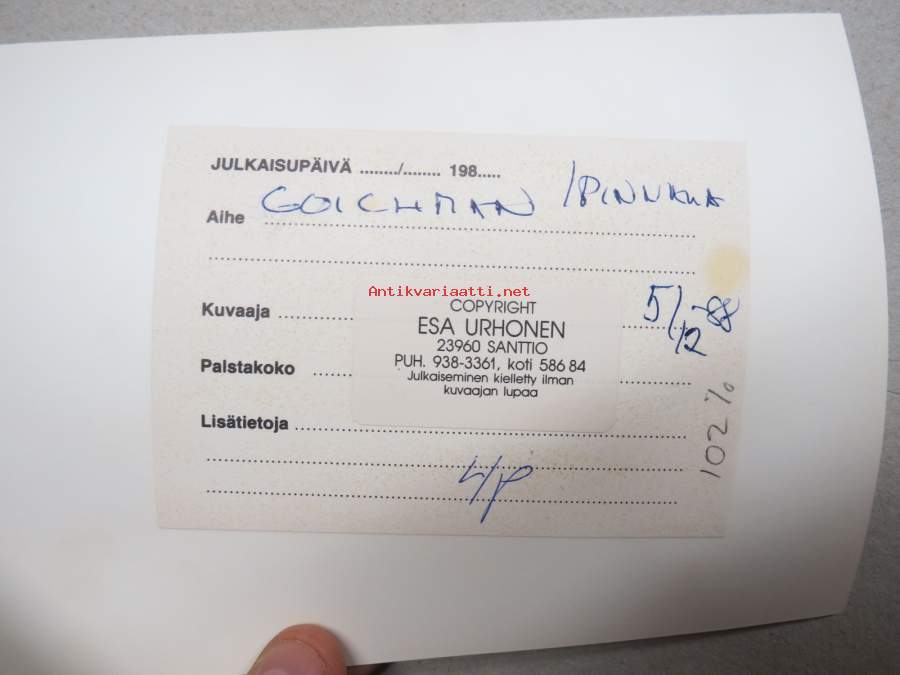 JULKAISUPÄIVÄ ......../........ 198.....
Aihe GOICHMAN
Antikvariaatti.net
Kuvaaja
COPYRIGHT
ESA URHONEN
23960 SANTTIO
PUH. 938-3361, koti 586 84
Julkaiseminen kielletty ilman
kuvaajan lupaa
5/12 -88
Palstakoko
Lisätietoja
102 %
4/P